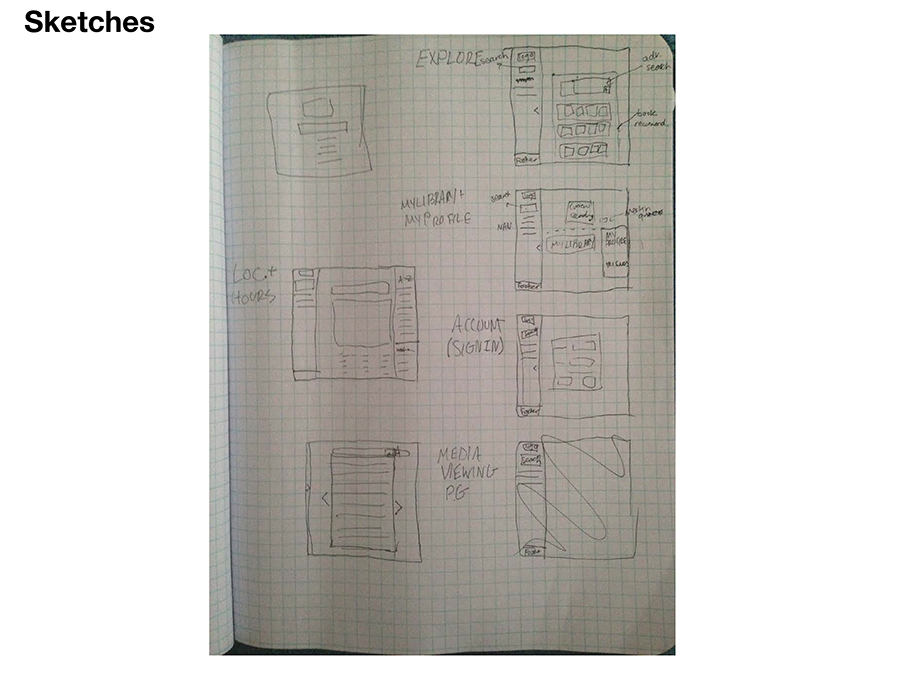 Sketches
EXPLORE
search
Logo
adv.
search
book
recommend.
Footer
MY LIBRARY +
MY PROFILE
search
Logo
NAV
current
reading
MY LIBRARY
MY
PROFILE
Footer
LOC. +
HOURS
A-Z
ACCOUNT
(SIGN IN)
Logo
Footer
MEDIA
VIEWING
PG
Logo
Search
Footer